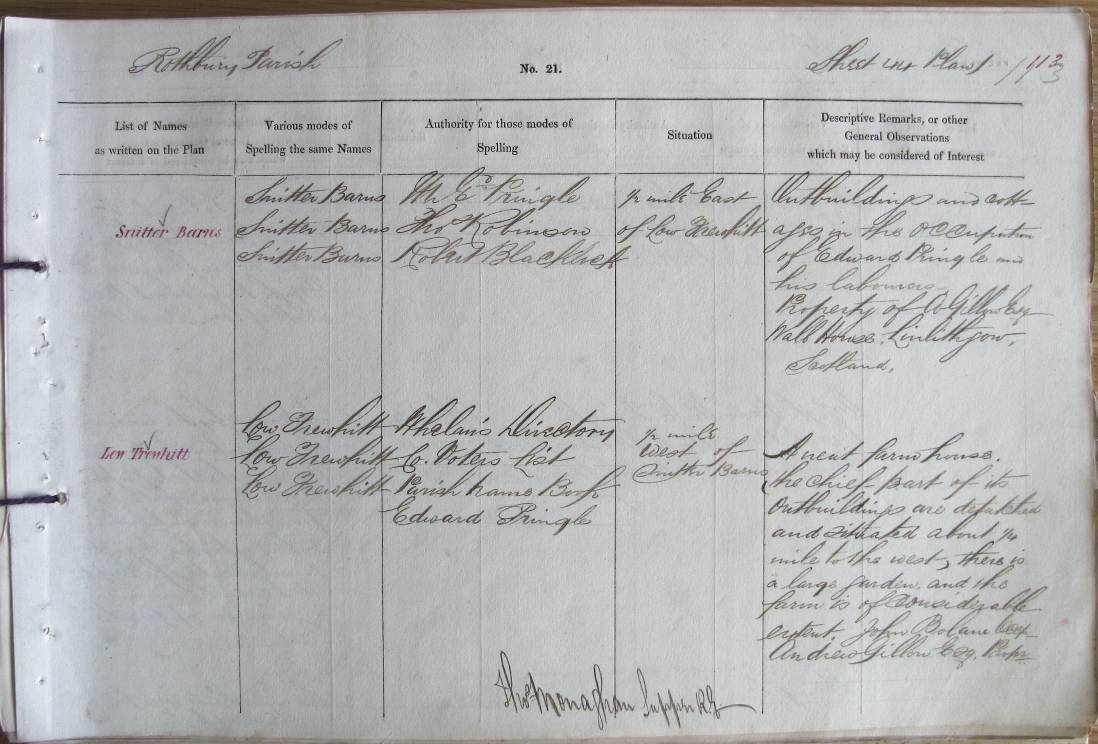 Rothbury Parish
No. 21.
Sheet 44 Plan 1
113
3
List of Names
as written on the Plan
Various modes of
Spelling the same Names
Authority for those modes of
Spelling
Situation
Descriptive Remarks, or other
General Observations
which may be considered of Interest
Snitter Barns
Snitter Barns
Snitter Barns
Snitter Barns
Mr Edd Pringle
Thos Robinson
Robert Blacklock
½ mile East
of Low Trewhitt
Outbuildings and cott-
ages in the occupation
of Edward Pringle and
his labourers
Property of A Gillow Esq
Wall House, Linlithgow,
Scotland,
Low Trewhitt
Low Trewhitt
Low Trewhitt
Low Trewhitt
Whelan's Directory
Co. Voters list
Parish name Book
Edward Pringle
½ mile
West of
Snitter Barns
A neat farm house.
the chief part of its
Outbuildings are detached
and situated about ¼
mile to the west, there is
a large garden, and the
farm is of considerable
extent. John Bolam
Andrew Gillow Esq. Propr
Thos Monaghan Sapper RE